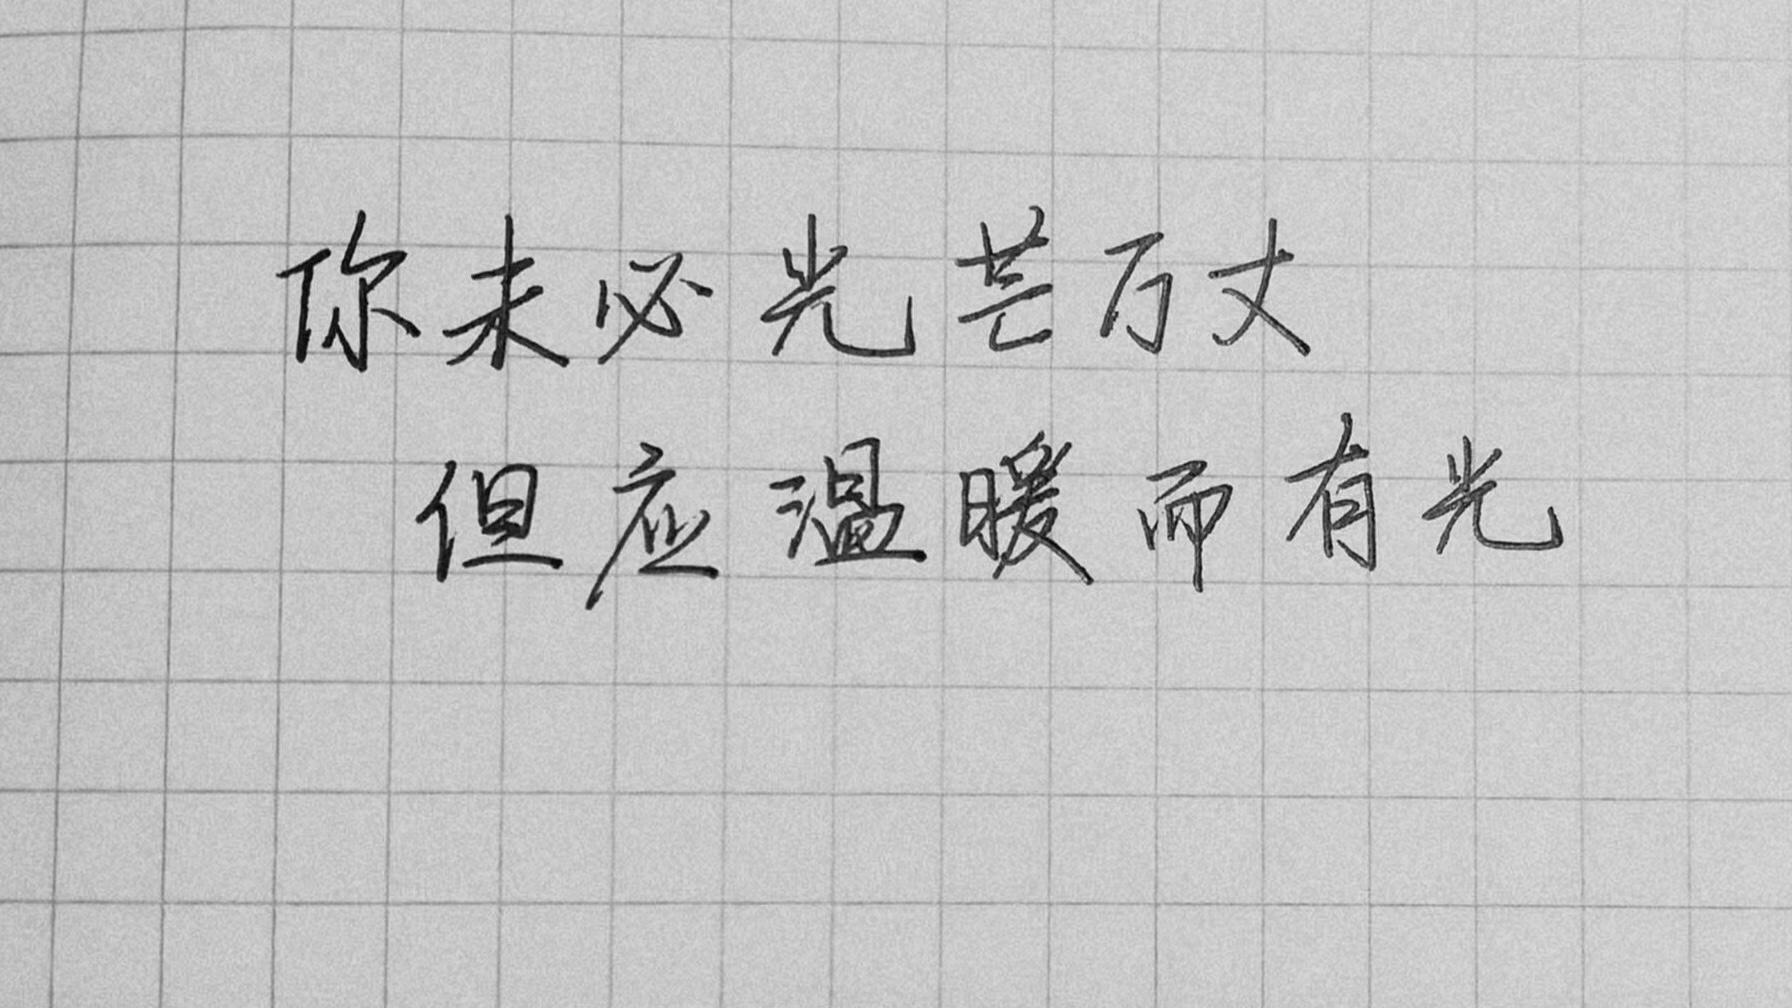 你未必光芒万丈
但应温暖而有光